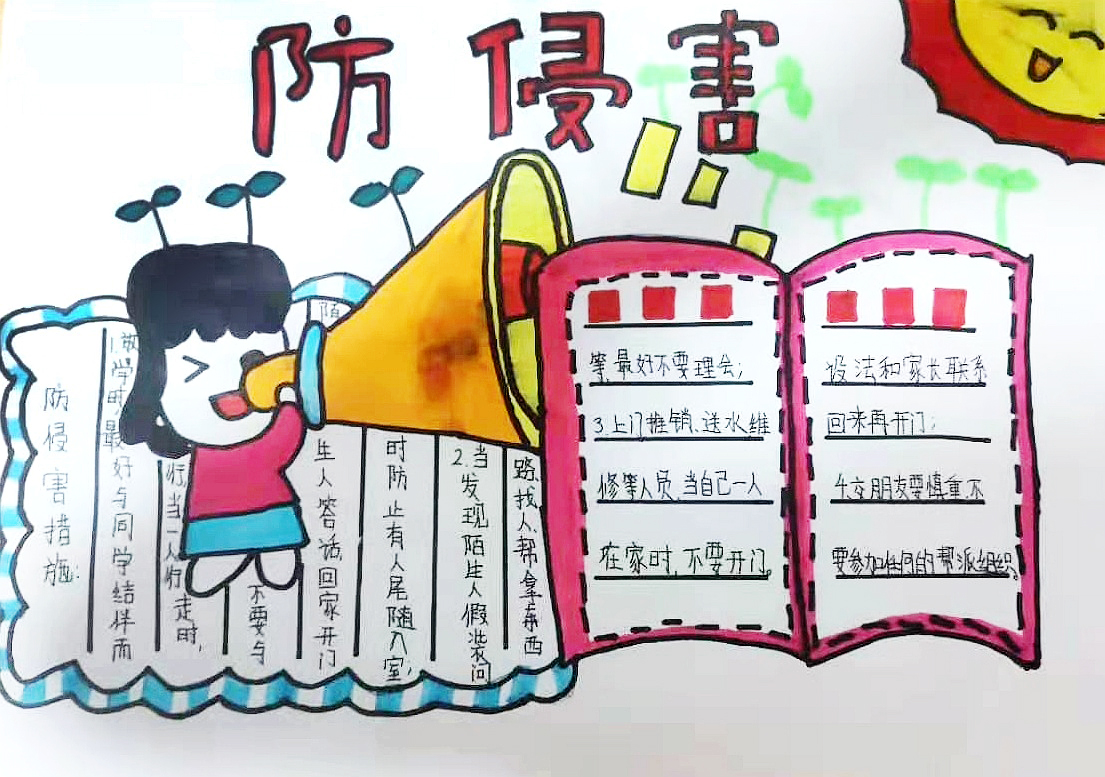 防侵害
防侵害措施:
1.放学时最好与同学结伴而
行,当一人行走时,
不要与
陌生人答话,回家开门
时防止有人尾随入室;
2.当发现陌生人假装问
路、找人、帮拿东西
等,最好不要理会;
3.上门推销、送水维
修等人员,当自己一人
在家时,不要开门。
设法和家长联系
回来再开门;
4.交朋友要慎重,不
要参加任何的帮派组织。